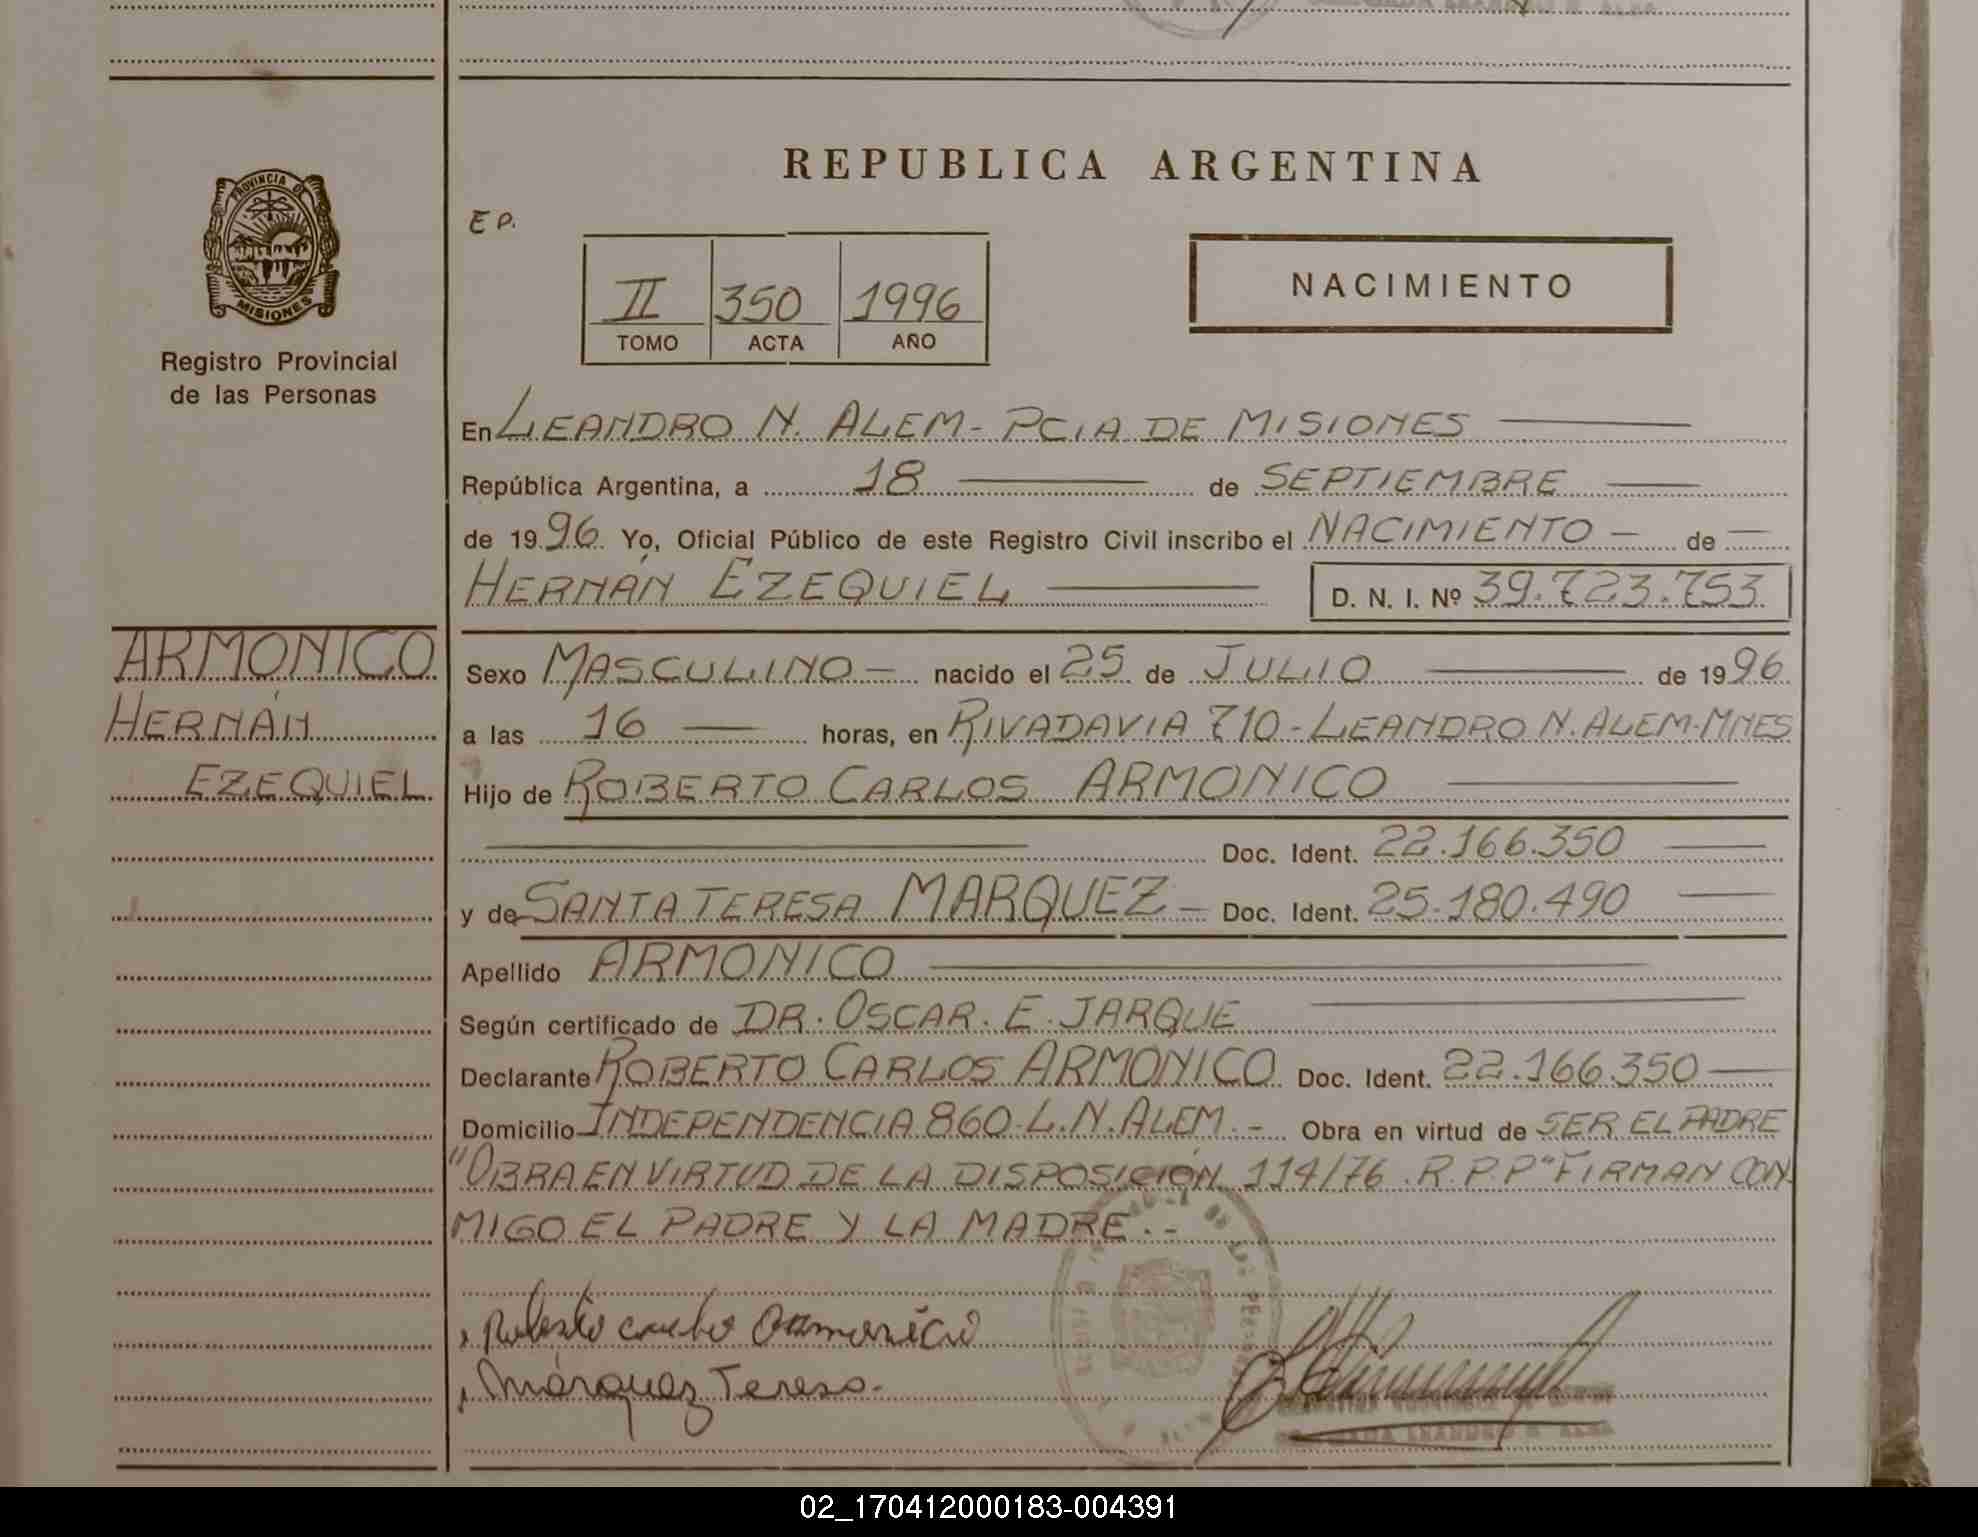 REPUBLICA ARGENTINA
E P.
PROVINCIA DE
MISIONES
Registro Provincial
de las Personas
II 350 1996
TOMO ACTA AÑO
NACIMIENTO
En LEANDRO N. ALEM - PCIA DE MISIONES
República Argentina, a 18 de SEPTIEMBRE
de 1996. Yo, Oficial Público de este Registro Civil inscribo el NACIMIENTO - de -
HERNÁN EZEQUIEL D. N. I. Nº 39.723.753
ARMONICO
HERNÁN
EZEQUIEL
Sexo MASCULINO - nacido el 25 de JULIO de 1996
a las 16 horas, en RIVADAVIA 710 - LEANDRO N. ALEM - MNES
Hijo de ROBERTO CARLOS ARMONICO
Doc. Ident. 22.166.350
y de SANTA TERESA MARQUEZ - Doc. Ident. 25.180.490
Apellido ARMONICO
Según certificado de DR. OSCAR. E. JARQUE
Declarante ROBERTO CARLOS ARMONICO Doc. Ident. 22.166.350
Domicilio INDEPENDENCIA 860 - L. N. ALEM. - Obra en virtud de SER EL PADRE
"OBRA EN VIRTUD DE LA DISPOSICIÓN 114/76 . R.P.P" FIRMAN CON
MIGO EL PADRE Y LA MADRE. -
Roberto Carlos Armonico
Márquez Teresa.
02_170412000183-004391